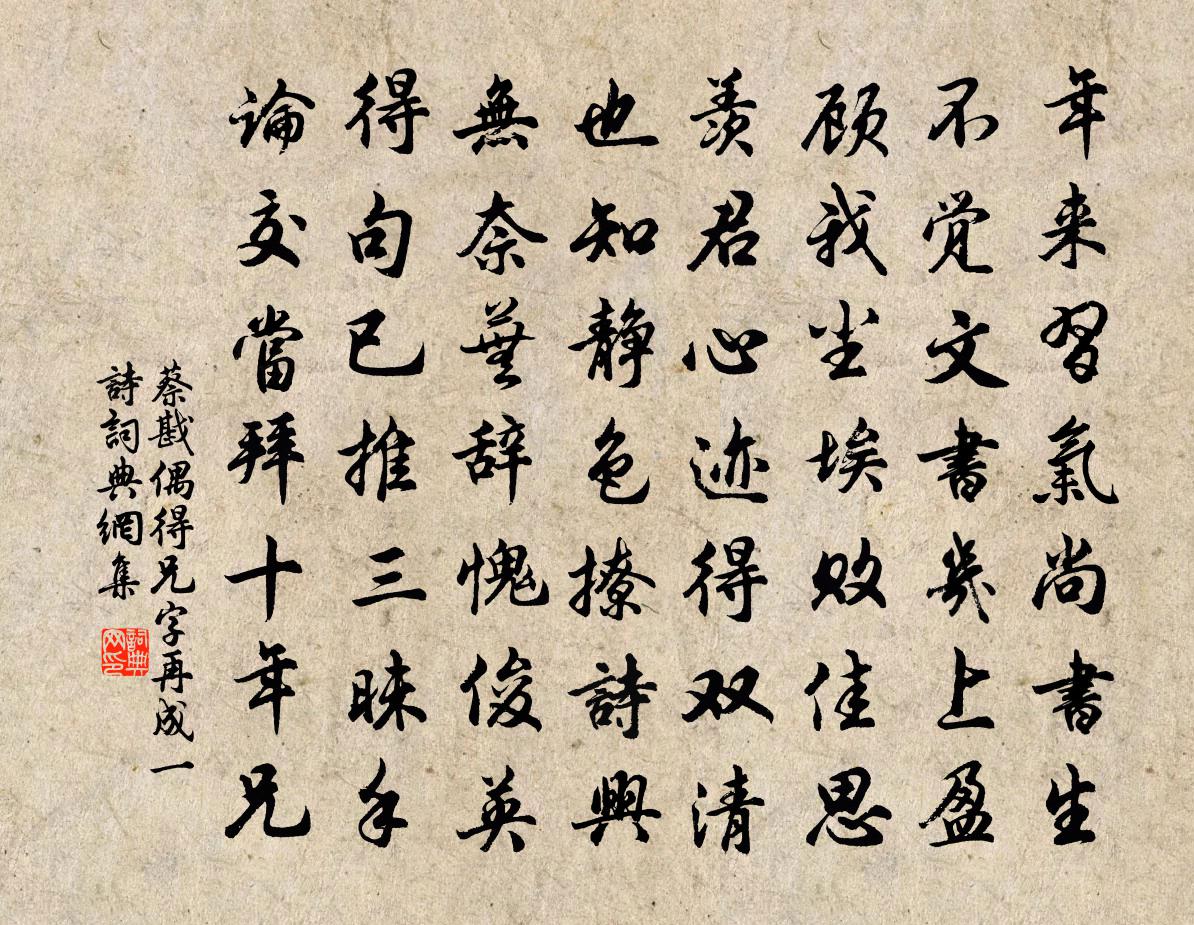 年来習氣尚書生
不觉文書幾上盈
顾我尘埃败佳思
羨君心迹得双清
也知静色撩詩興
無奈蕪辞愧俊英
得句已推三昧手
論交當拜十年兄
蔡戡偶得兄字再成一
詩詞典網集
詞典网印